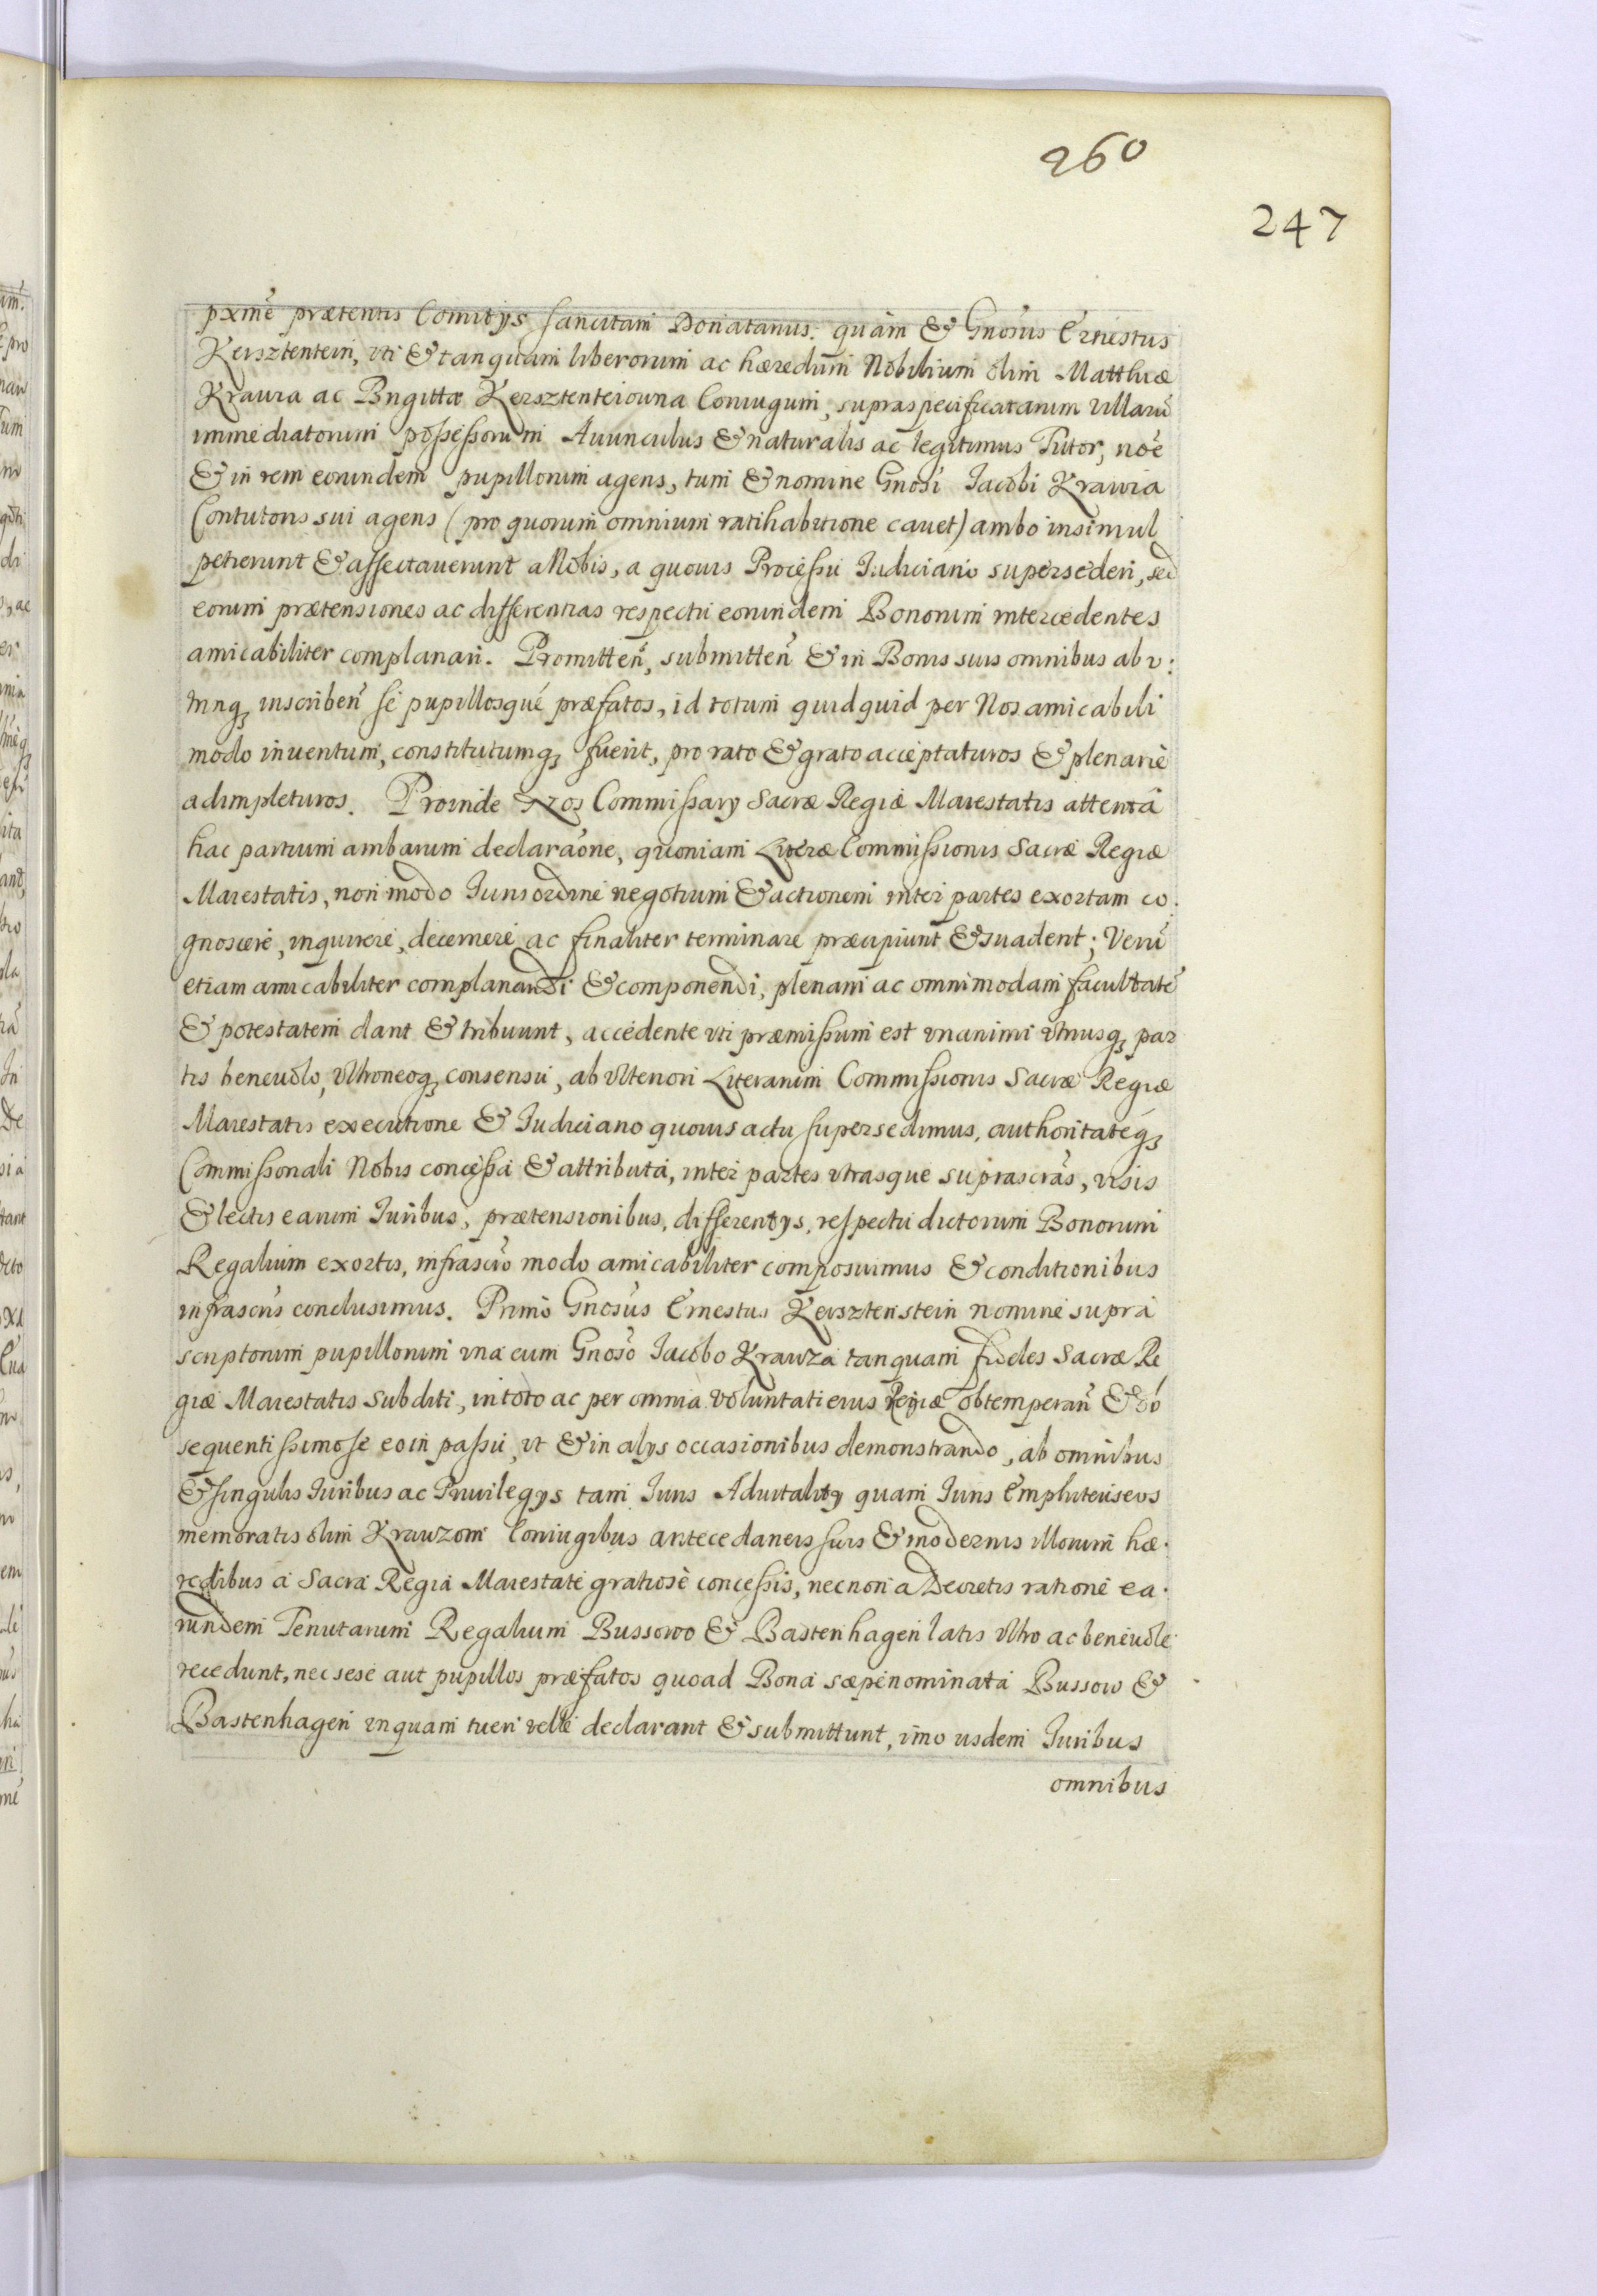 260
247
pxmè prætentis Comitys sancitam Donatarius. quàm & Gnosus Ernestus
Kersztentein, vti & tanquam liberorum ac hæredum Nobilium olim Matthiæ
Krauza ac Brigittæ Kersztenteiowna Coniugum, supraspecificatarum villarū
immediatorum possessorum Auunculus & naturalis ac legitimus Tutor, noē
& in rem eorundem pupillorum agens, tum & nomine Gnosi Iacobi Krawza
Contutoris sui agens (pro quorum omnium ratihabitione cauet) ambo insimul
petierunt & affectauerunt a Nobis, a quouis Processu Iudiciario supersederi, sed
eorum prætensiones ac differentias respectu eorundem Bonorum intercedentes
amicabiliter complanari. Promitteñ, submitteñ & in Bonis suis omnibus ab v:
trinq; inscribeñ se pupillosqué præfatos, id totum quidquid per Nos amicabili
modo inuentum, constitutumq; fuerit, pro rato & grato acceptaturos & plenariè
adimpleturos. Proinde Nos Commissary Sacræ Regiæ Maiestatis attentâ
hac partium ambarum declaraōne, quoniam Literæ Commissionis Sacræ Regiæ
Maiestatis, non modo Iuris ordine negotium & actionem inter partes exortam co:
gnoscere, inquirere, decernere ac finaliter terminare præcipiunt & suadent; Verū
etiam amicabiliter complanandi & componendi, plenam ac omnimodam facultatē
& potestatem dant & tribuunt, accedente vti præmissum est vnanimi vtriusq; par
tis beneuolo, vltroneoq; consensu, ab vlteriori Literarum Commissionis Sacræ Regiæ
Maiestatis executione & Iudiciario quouis actu supersedimus, authoritateq;
Commissionali Nobis concessâ & attributâ, inter partes vtrasque suprascrās, visis
& lectis earum Iuribus, prætensionibus, differentys, respectu dictorum Bonorum
Regalium exortis, infrascrō modo amicabiliter composuimus & conditionibus
infrascrīs conclusimus. Primò Gnosus Ernestus Kersztenstein nomine supra
scriptorum pupillorum vna cum Gnoso Iacobo Krawza tanquam fideles Sacræ Re
giæ Maiestatis subditi, in toto ac per omnia voluntati eius Regiæ obtemperañ & ob
sequentissimos se eo in passu, vt & in alys occasionibus demonstrando, ab omnibus
& singulis Iuribus ac Priuilegys tam Iuris Aduitality quam Iuris Emphiteuseos
memoratis olim Krawzom Coniugibus antecedaneis suis & modernis illorum hæ:
redibus a Sacra Regia Maiestate gratiosè concessis, necnon a Decretis ratione ea:
rundem Tenutarum Regalium Bussowo & Bastenhagen latis vltro ac beneuole
recedunt, nec sese aut pupillos præfatos quoad Bona sæpenominata Bussow &
Bastenhagen inquam tueri velle declarant & submittunt, imo ijsdem Iuribus
omnibus